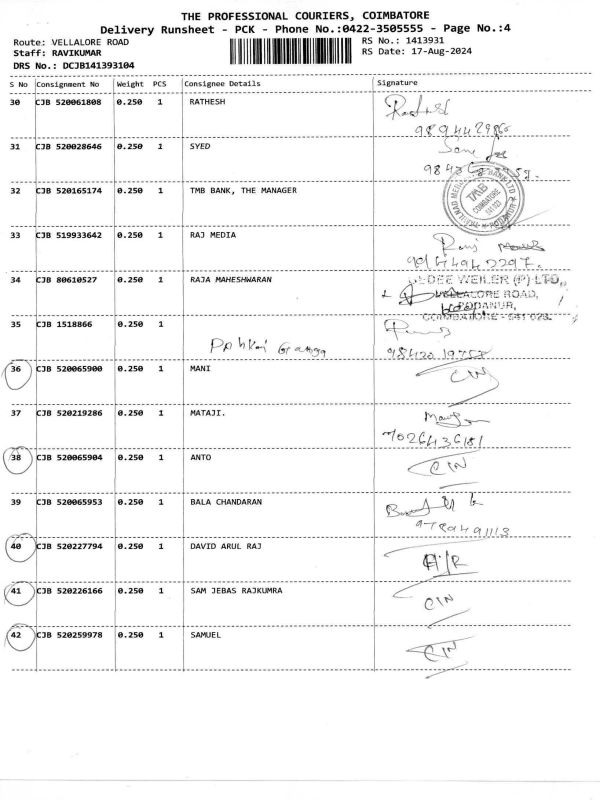 THE PROFESSIONAL COURIERS, COIMBATORE
Delivery Runsheet - PCK - Phone No.:0422-3505555 - Page No.:4
Route: VELLALORE ROAD
RS No.: 1413931
Staff: RAVIKUMAR
RS Date: 17-Aug-2024
DRS No.: DCJB141393104
S No Consignment No Weight PCS Consignee Details Signature
30 CJB 520061808 0.250 1 RATHESH
31 CJB 520028646 0.250 1 SYED
32 CJB 520165174 0.250 1 TMB BANK, THE MANAGER
TMB
COIMBATORE
33 CJB 519933642 0.250 1 RAJ MEDIA
34 CJB 80610527 0.250 1 RAJA MAHESHWARAN
WEILER (P) LTD,
VELLALORE ROAD,
PODANUR,
COIMBATORE - 641 023.
35 CJB 1518866 0.250 1
36 CJB 520065900 0.250 1 MANI CIN
37 CJB 520219286 0.250 1 MATAJI.
7026436181
38 CJB 520065904 0.250 1 ANTO CIN
39 CJB 520065953 0.250 1 BALA CHANDARAN
9789491113
40 CJB 520227794 0.250 1 DAVID ARUL RAJ
41 CJB 520226166 0.250 1 SAM JEBAS RAJKUMRA CIN
42 CJB 520259978 0.250 1 SAMUEL CIN